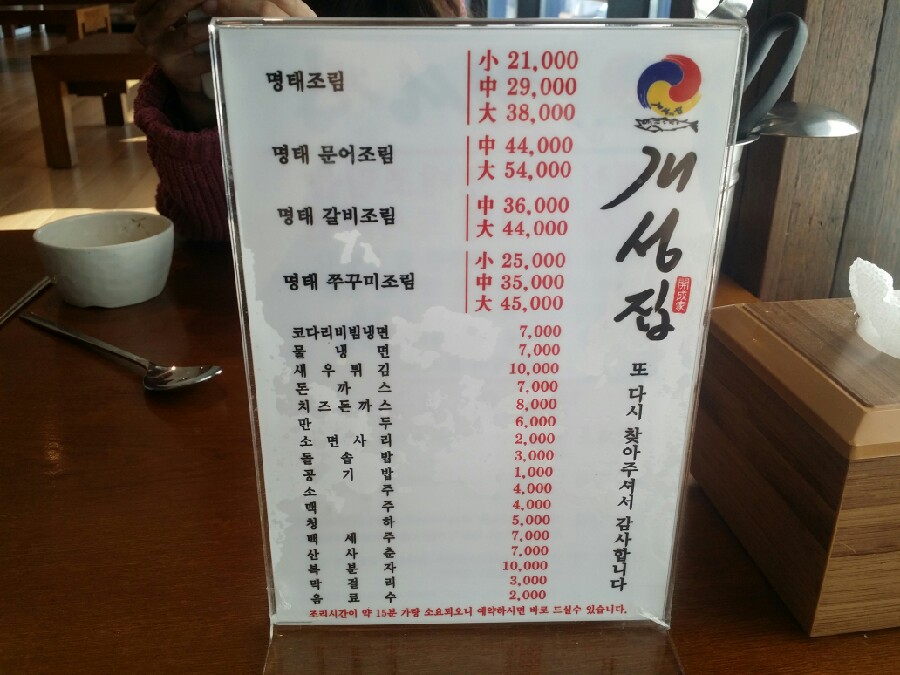 명태조림 小 21,000
中 29,000
大 38,000
명태 문어조림 中 44,000
大 54,000
명태 갈비조림 中 36,000
大 44,000
명태 쭈꾸미조림 小 25,000
中 35,000
大 45,000
코다리비빔냉면 7,000
물냉면 7,000
새우튀김 10,000
돈까스 7,000
치즈돈까스 8,000
만두 6,000
소면사리 2,000
돌솥밥 3,000
공기밥 1,000
소주 4,000
맥주 4,000
청하 5,000
백세주 7,000
산사춘 7,000
복분자 10,000
막걸리 3,000
음료수 2,000
조리시간이 약 15분 가량 소요되오니 예약하시면 바로 드실수 있습니다.
개성집
開城家
또 다시 찾아주셔서 감사합니다